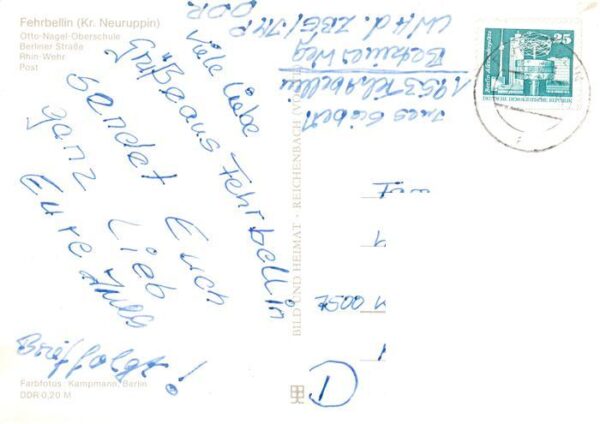 Fehrbellin (Kr. Neuruppin)
Otto-Nagel-Oberschule
Berliner Straße
Rhin-Wehr
Post
Viele liebe
Grüße aus Fehrbellin
sendet Euch
ganz lieb
Eure Ines
Brief folgt!
Farbfotos: Kampmann, Berlin
DDR 0,20 M
BILD UND HEIMAT · REICHENBACH
Ines
1953 Fehrbellin
Weg
DDR
25
DEUTSCHE DEMOKRATISCHE REPUBLIK
D